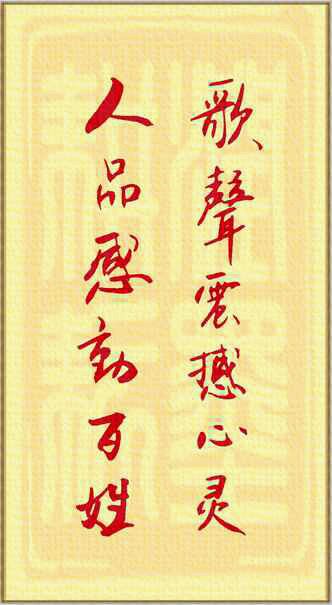 歌聲震撼心灵
人品感動百姓